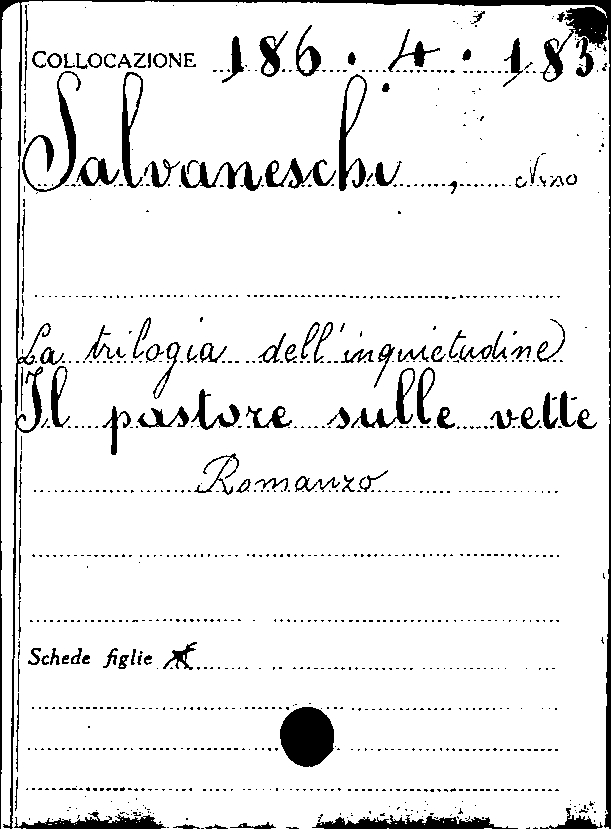 COLLOCAZIONE 186.4.183
Salvaneschi, Nino
La trilogia dell'inquietudine
Il pastore sulle vette
Romanzo
Schede figlie